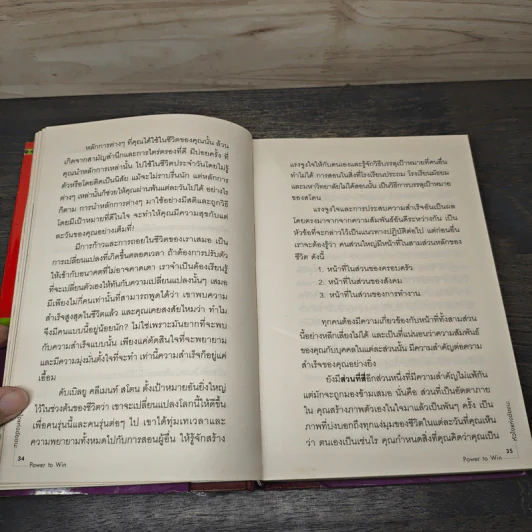 หลักการต่างๆ ที่คุณได้ใช้ในชีวิตของคุณนั้น ล้วน
เกิดจากสามัญสำนึกและการไตร่ตรองที่ดี มีบ่อยครั้ง ที่
คุณนำหลักการเหล่านั้น ไปใช้ในชีวิตประจำวันโดยไม่รู้
ตัวหรือโดยติดเป็นนิสัย แม้จะไม่ราบรื่นนัก แต่หลักการ
ต่างๆ เหล่านั้นก็ช่วยให้คุณผ่านพ้นแต่ละวันไปได้ อย่างไร
ก็ตาม การนำหลักการต่างๆ มาใช้อย่างมีสติและถูกวิธี
โดยมีเป้าหมายที่ดีในใจ จะทำให้คุณมีความสุขกับแต่
ละวันของคุณอย่างเต็มที่!
มีการก้าวและการถอยในชีวิตของเราเสมอ เป็น
การเปลี่ยนแปลงที่เกิดขึ้นตลอดเวลา ถ้าต้องการปรับตัว
ให้เข้ากับอนาคตที่ไม่อาจคาดเดา เราจำเป็นต้องเรียนรู้
ที่จะเปลี่ยนตัวเองให้ทันกับความเปลี่ยนแปลงนั้นๆ เสมอ
มีเพียงไม่กี่คนเท่านั้นที่สามารถพูดได้ว่า เขาพบความ
สำเร็จสูงสุดในชีวิตแล้ว และคุณเคยสงสัยไหมว่า ทำไม
จึงมีคนแบบนี้อยู่น้อยนัก? ไม่ใช่เพราะมันยากที่จะพบ
กับความสำเร็จแบบนั้น เพียงแค่ตัดสินใจที่จะพยายาม
และมีความมุ่งมั่นตั้งใจที่จะทำ เท่านี้ความสำเร็จก็อยู่แค่
เอื้อม
ดับเบิลยู คลีเมนท์ สโตน ตั้งเป้าหมายอันยิ่งใหญ่
ไว้ในช่วงต้นของชีวิตว่า เขาจะเปลี่ยนแปลงโลกนี้ให้ดีขึ้น
เพื่อคนรุ่นนี้และคนรุ่นต่อๆ ไป เขาได้ทุ่มเทเวลาและ
ความพยายามทั้งหมดไปกับการสอนผู้อื่น ให้รู้จักสร้าง
34
Power to Win
แรงจูงใจให้กับตนเองและรู้จักวิธีบรรลุเป้าหมายที่คนอื่น
ทำไม่ได้ การสอนในสิ่งที่โรงเรียนประถม โรงเรียนมัธยม
และมหาวิทยาลัยไม่ได้สอนนั้น เป็นวิธีการบรรลุเป้าหมาย
ของสโตน
แรงจูงใจและการประสบความสำเร็จอันเป็นผล
โดยตรงมาจากจากความสัมพันธ์อันดีระหว่างกัน เป็น
หัวข้อที่จะกล่าวไว้เป็นแนวทางปฏิบัติต่อไป แต่ก่อนอื่น
เราจะต้องรู้ว่า คนส่วนใหญ่มีหน้าที่ในสามส่วนหลักของ
ชีวิต ดังนี้
1. หน้าที่ในส่วนของครอบครัว
2. หน้าที่ในส่วนของสังคม
3. หน้าที่ในส่วนของการทำงาน
ทุกคนต้องมีความเกี่ยวข้องกับหน้าที่ทั้งสามส่วน
นี้อย่างหลีกเลี่ยงไม่ได้ และเป็นที่แน่นอนว่าความสัมพันธ์
ของคุณกับบุคคลในแต่ละส่วนนั้น มีความสำคัญต่อความ
สำเร็จของคุณอย่างยิ่ง
ยังมีส่วนที่สี่อีกส่วนหนึ่งที่มีความสำคัญไม่แพ้กัน
แต่มักจะถูกมองข้ามเสมอ นั่นคือ ส่วนที่เป็นอัตตาภาย
ใน คุณสร้างภาพตัวเองในใจมาแล้วเป็นพันๆ ครั้ง เป็น
ภาพที่บ่งบอกถึงทุกแง่มุมของชีวิตในแต่ละวันที่คุณเห็น
ว่า ตนเองเป็นเช่นไร คุณกำหนดสิ่งที่คุณคิดว่าคุณเป็น
35
Power to Win